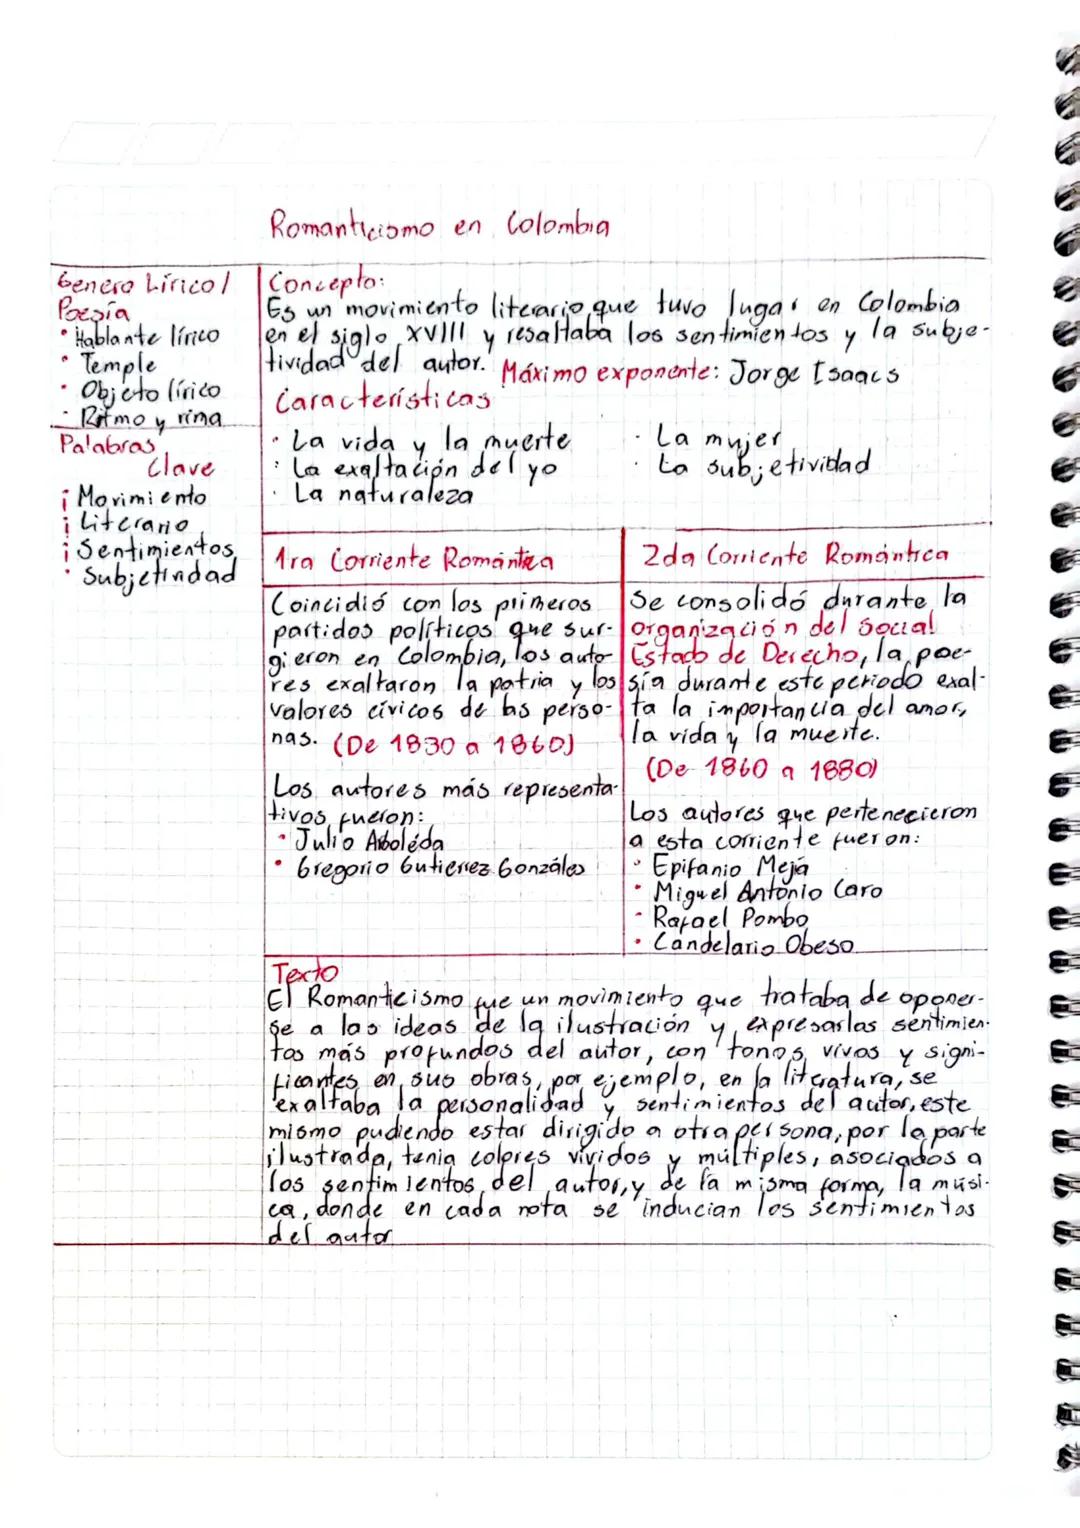 Romanticismo en Colombia
Genero Lírico/
Poesía
• Hablante lírico
• Temple
• Objeto lírico
• Ritmo y rima
Palabras
Clave
¡ Movimiento
¡ Literario
¡ Sentimientos
• Subjetividad
Concepto:
Es un movimiento literario, que tuvo lugar en Colombia
en el siglo XVIII y resaltaba los sentimientos y la subje-
tividad del autor. Máximo exponente: Jorge Isaacs
Características
• La vida y la muerte
: La exaltación del yo
• La naturaleza
• La mujer
• La subjetividad
1ra Corriente Romántica
Coincidió con los primeros
partidos políticos que sur-
gieron en Colombia, los auto-
res exaltaron la patria y los
valores cívicos de las perso-
nas. (De 1830 a 1860)
Los autores más representa-
tivos fueron:
• Julio Arboléda
• Gregorio Gutierrez Gonzáles
2da Corriente Romántica
Se consolidó durante la
organización del Social
Estado de Derecho, la poe-
sía durante este periodo exal-
ta la importancia del amor,
la vida y la muerte.
(De 1860 a 1880)
Los autores que pertenecieron
a esta corriente fueron:
• Epifanio Mejía
• Miguel Antonio Caro
• Rafael Pombo
• Candelario Obeso
Texto
El Romanticismo fue un movimiento que trataba de oponer-
se a las ideas de la ilustración y expresar las sentimien-
tos más profundos del autor, con tonos vivos y signi-
ficantes en sus obras, por ejemplo, en la literatura, se
exaltaba la personalidad y sentimientos del autor, este
mismo pudiendo estar dirigido a otra persona, por la parte
ilustrada, tenia colores vividos y múltiples, asociados a
los sentimientos del autor, y de la misma forma, la músi-
ca, donde en cada nota se inducian los sentimientos
del autor